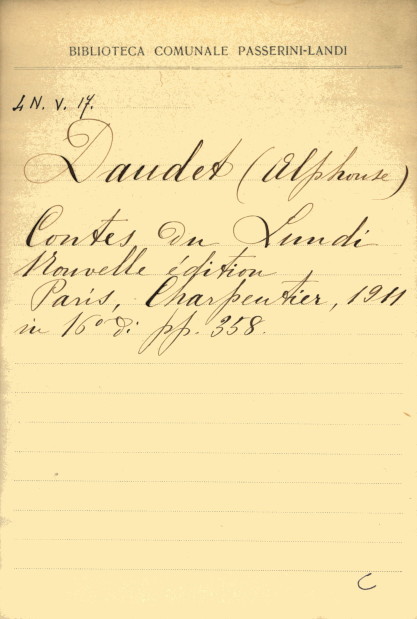 BIBLIOTECA COMUNALE PASSERINI-LANDI
4 N. V. 17.
Daudet (Alphonse)
Contes du Lundi
Nouvelle édition
Paris, Charpentier, 1911
in 16º di pp. 358.
C